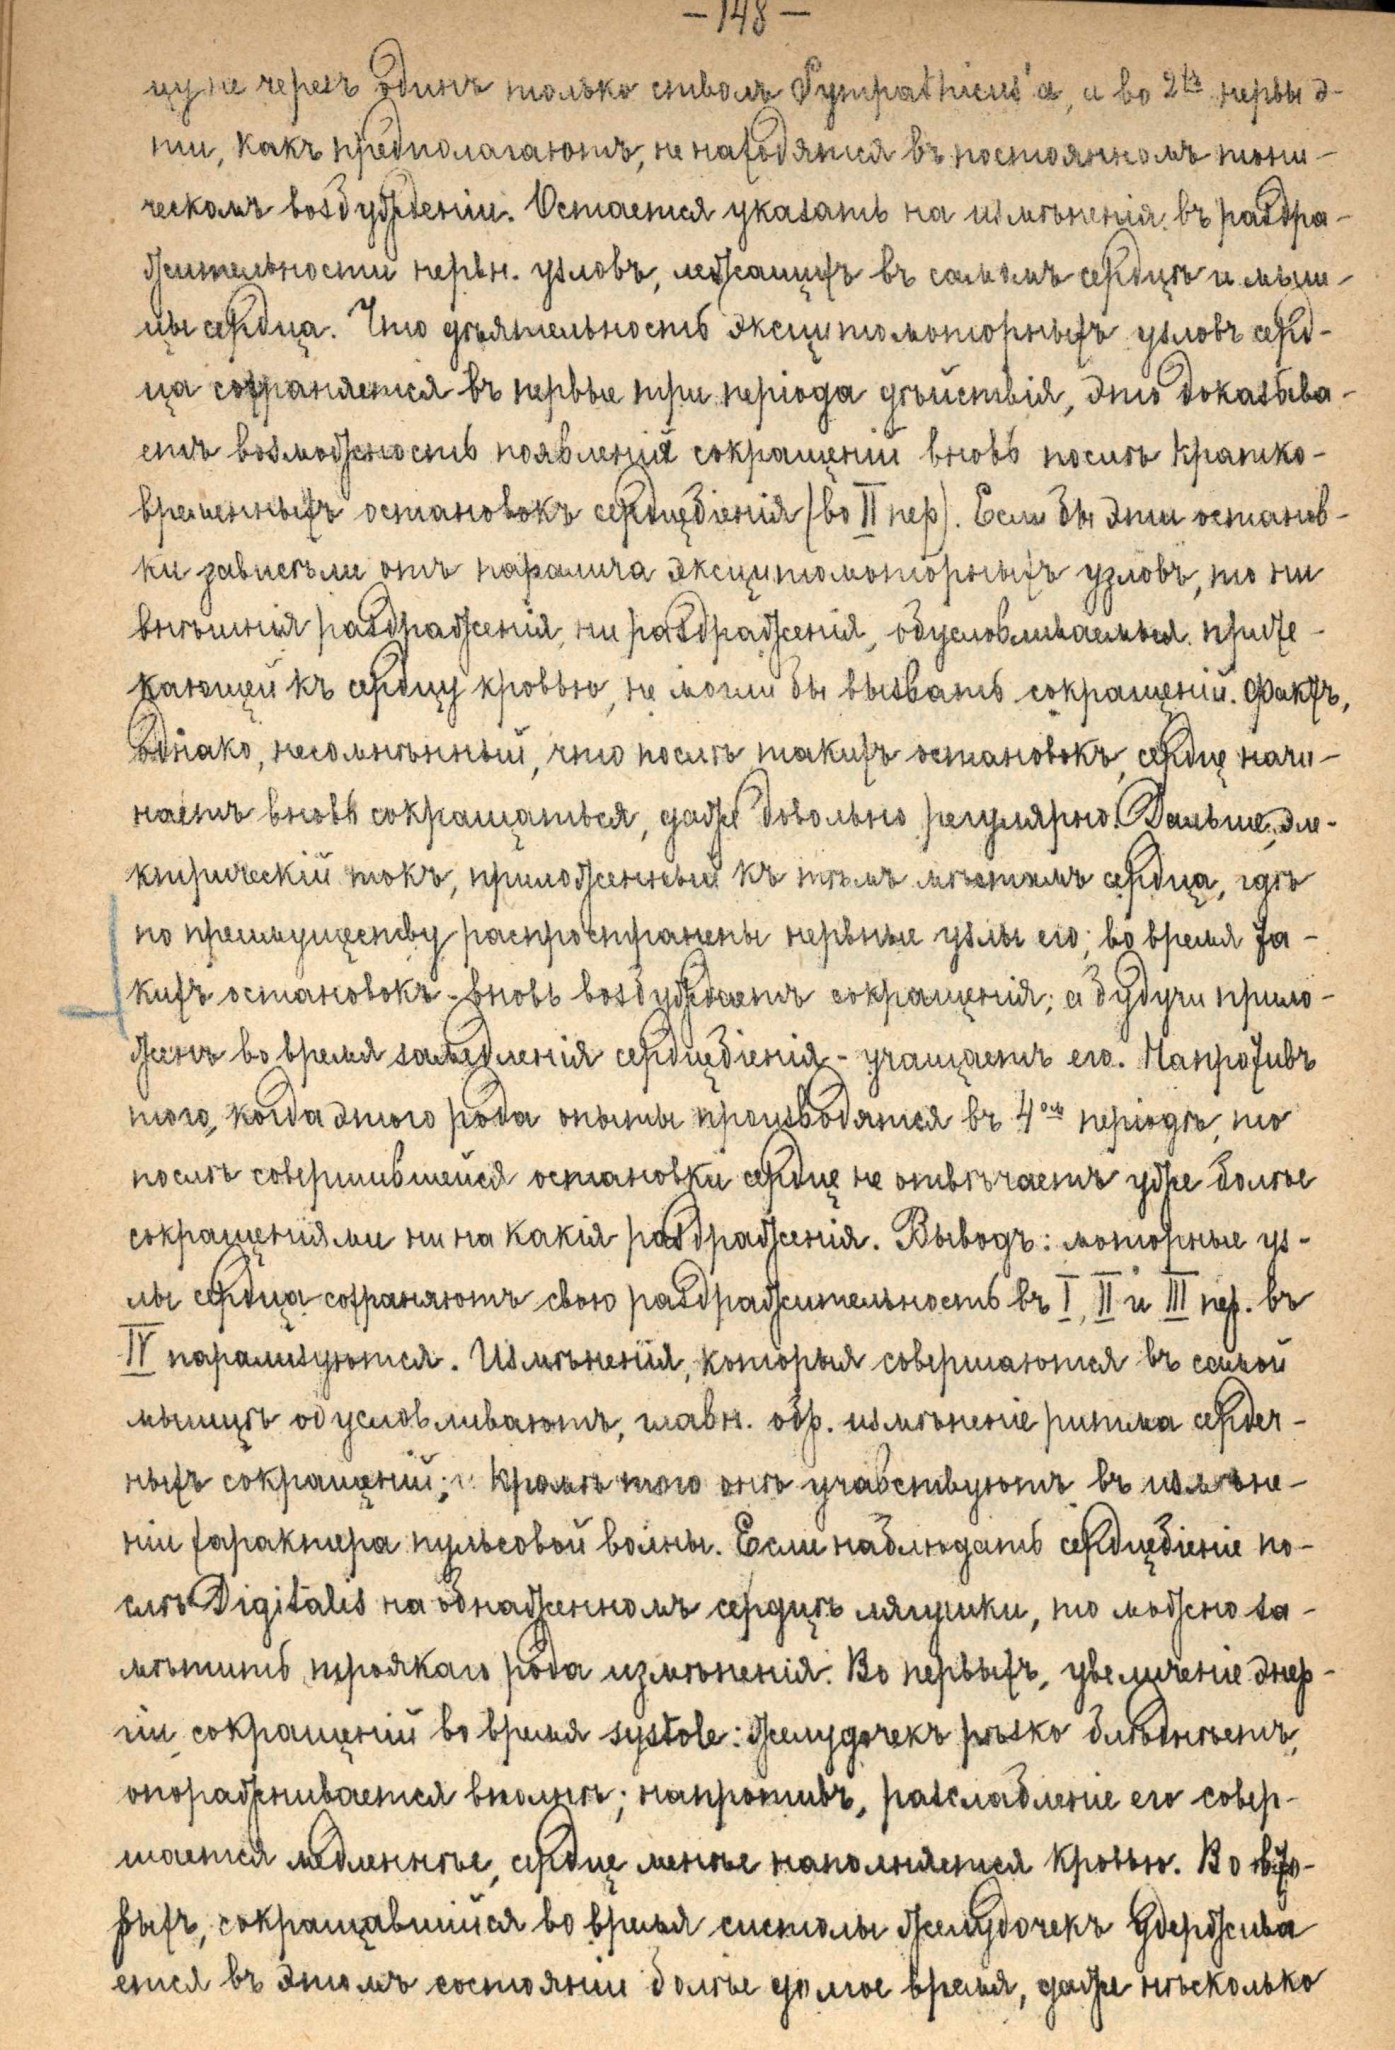 — 148 —
цу не черезъ одинъ только стволъ Sympathicus'а, а во 2хъ нервы э-
ти, какъ предполагаютъ, не находятся въ постоянномъ тони-
ческомъ возбужденіи. Остается указать на измѣненія въ раздра-
жительности нервн. узловъ, лежащихъ въ самомъ сердцѣ и мыш-
цы сердца. Что дѣятельность эксцитомоторныхъ узловъ серд-
ца сохраняется въ первые три періода дѣйствія, это доказыва-
етъ возможность появленія сокращеній вновь послѣ кратко-
временныхъ остановокъ сердцебіенія (во II пер). Если бы эти останов-
ки зависѣли отъ паралича эксцитомоторныхъ узловъ, то ни
внѣшнія раздраженія, ни раздраженія, обусловливаемыя прите-
кающей къ сердцу кровью, не могли бы вызвать сокращеній. Фактъ,
однако, несомнѣнный, что послѣ такихъ остановокъ, сердце начи-
наетъ вновь сокращаться, даже довольно регулярно. Дальше, эле-
ктрическій токъ, приложенный къ тѣмъ мѣстамъ сердца, гдѣ
по преимуществу распространены нервные узлы его, во время та-
кихъ остановокъ - вновь возбуждаетъ сокращенія; а будучи прило-
женъ во время замедленія сердцебіенія - учащаетъ его. Напротивъ
того, когда этого рода опыты производятся въ 4омъ періодѣ, то
послѣ совершившейся остановки сердце не отвѣчаетъ уже болѣе
сокращеніями ни на какія раздраженія. Выводъ: моторные уз-
лы сердца сохраняютъ свою раздражительность въ I, II и III пер. въ
IV парализуются. Измѣненія, которыя совершаются въ самой
мышцѣ обусловливаютъ, главн. обр. измѣненіе ритма сердеч-
ныхъ сокращеній; кромѣ того онѣ участвуютъ въ измѣне-
ніи характера пульсовой волны. Если наблюдать сердцебіеніе по-
слѣ Digitalis на обнаженномъ сердцѣ лягушки, то можно за-
мѣтить троякаго рода измѣненія. Во первыхъ, увеличеніе энер-
гіи сокращеній во время systole: желудочекъ рѣзко блѣднѣетъ,
опоражнивается вполнѣ; напротивъ, разслабленіе его совер-
шается медленнѣе, сердце менѣе наполняется кровью. Во вто-
рыхъ, сокращавшійся во время систолы желудочекъ удержива
ется въ этомъ состояніи болѣе долгое время, даже нѣсколько